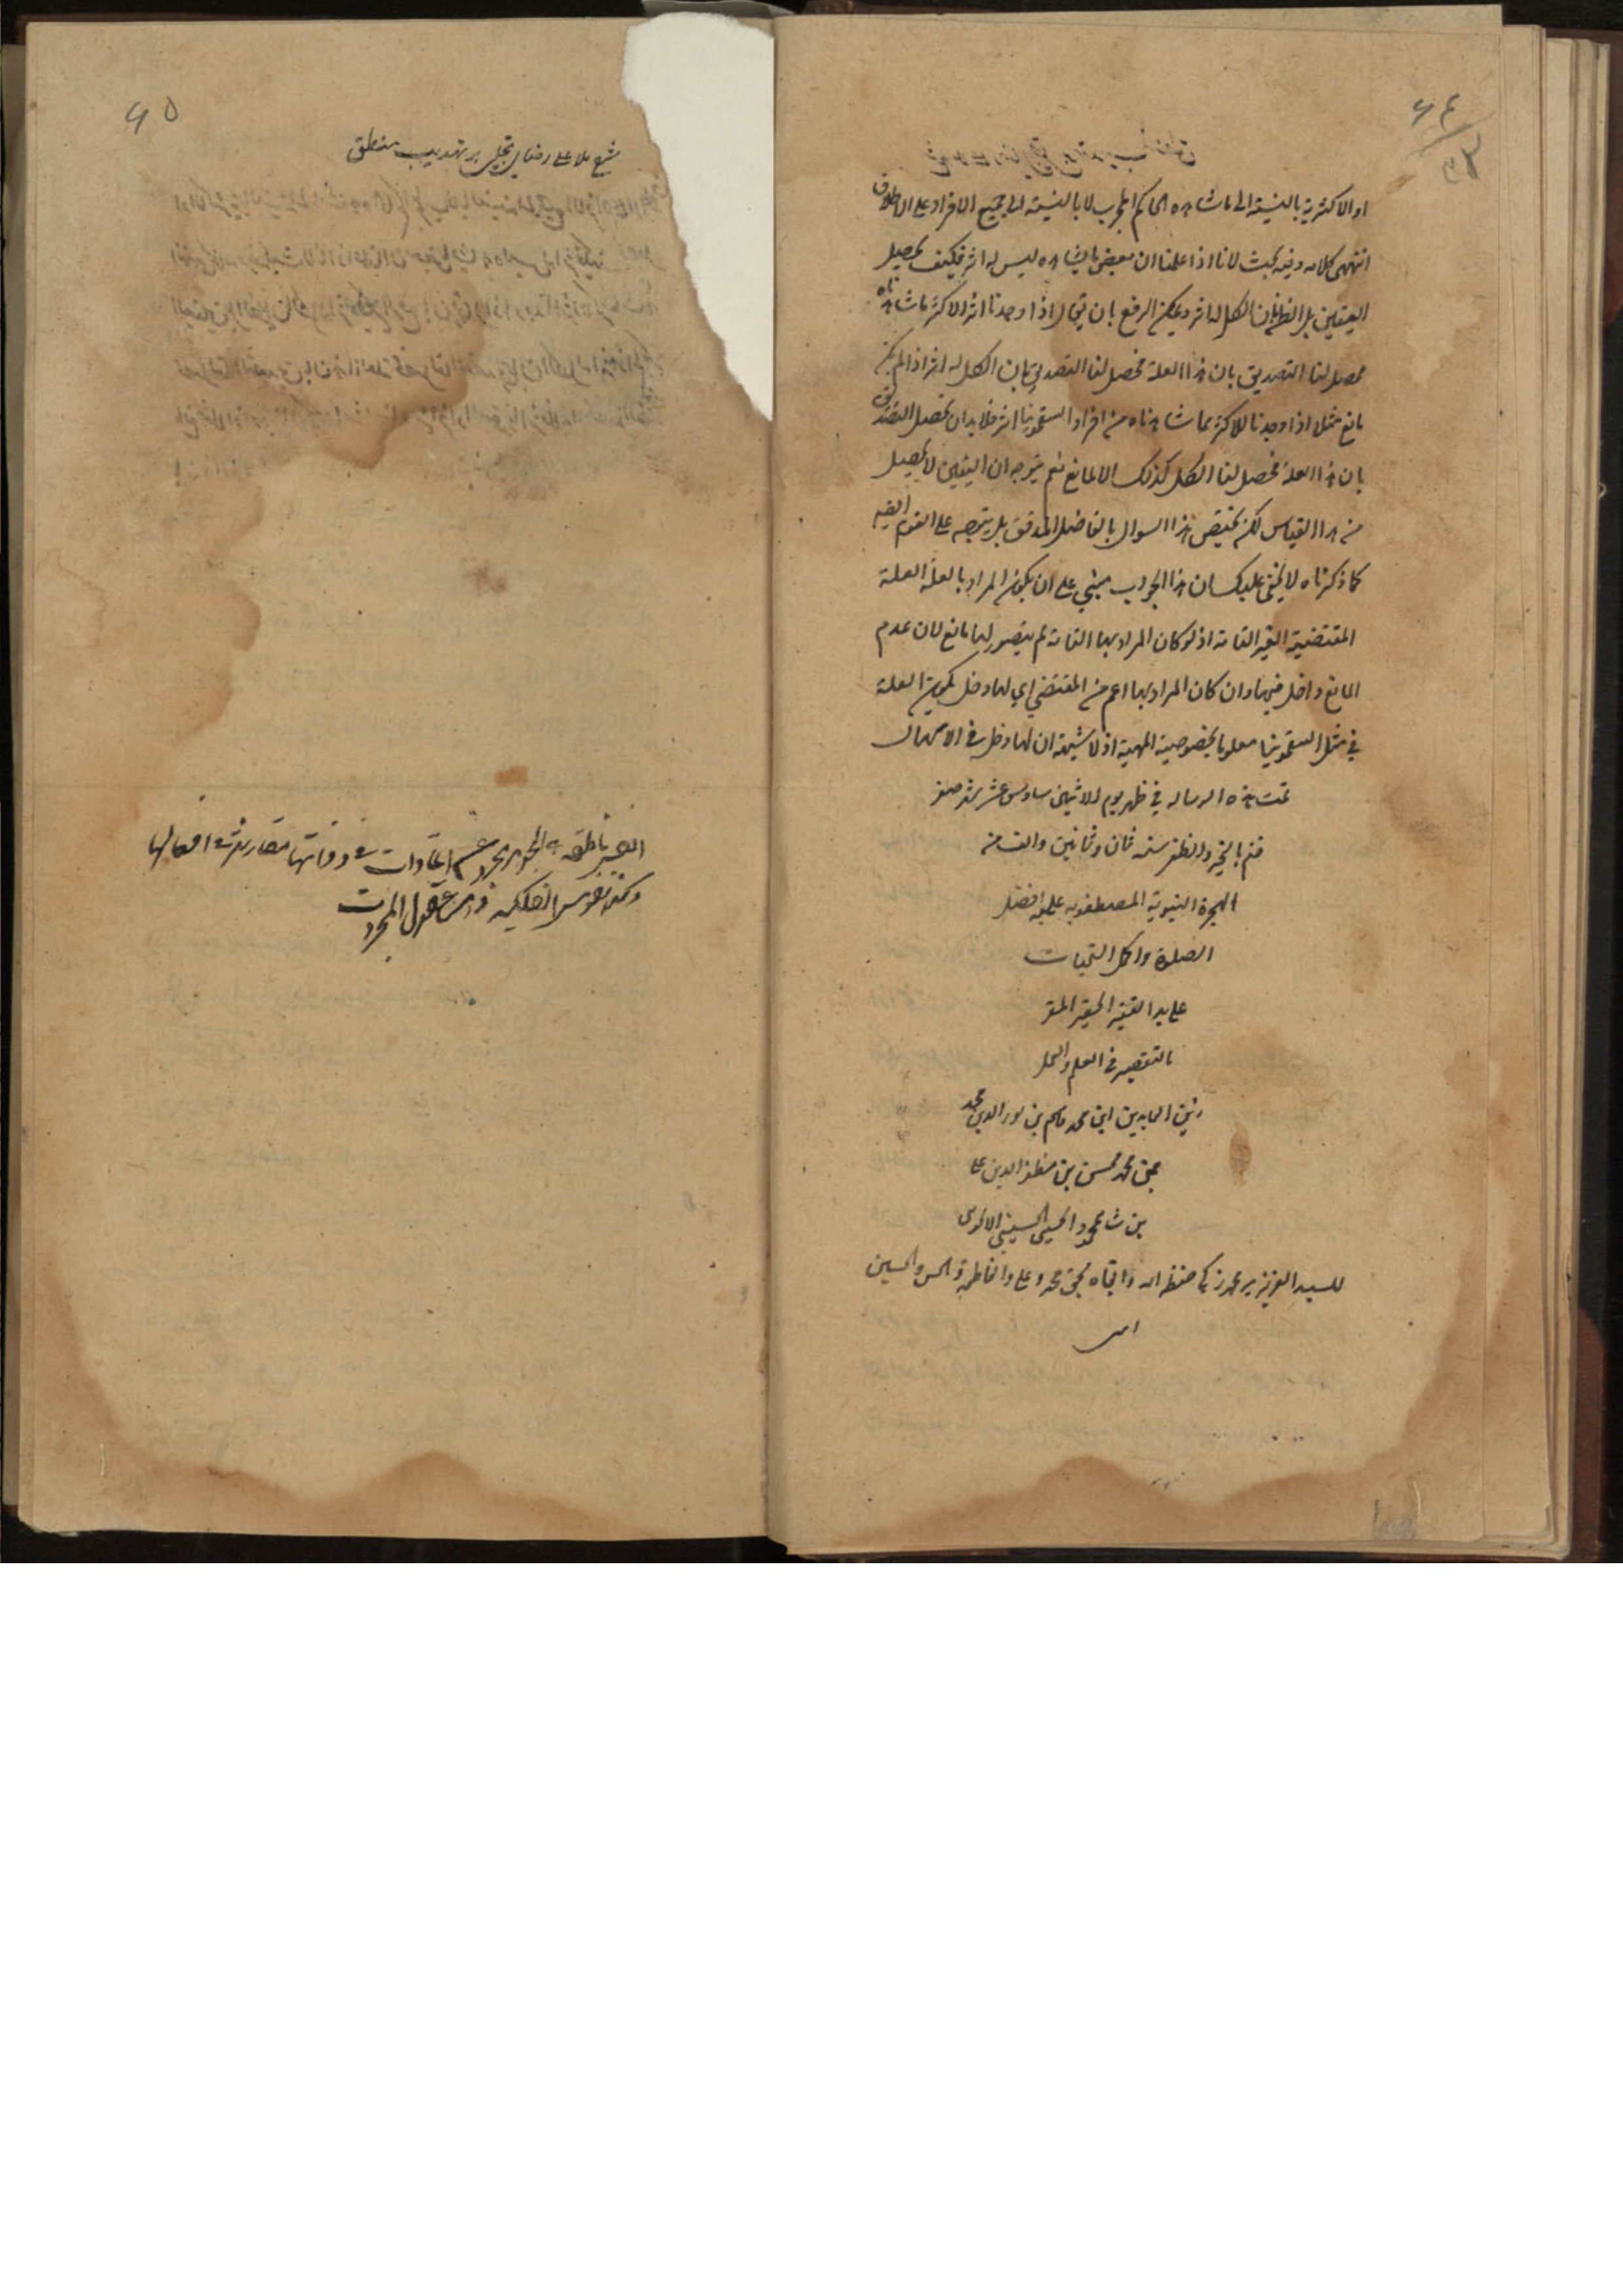 ٦٤
او الاكثرية بالنسبة الى ما شاهده الحاكم المجرب لا بالنسبة الى جميع الافراد على الاطلاق
انتهى كلامه وفيه بحث لانا اذا علمنا ان بعض ما يشاهده ليس له اثر فكيف يحصل
اليقين بل الظن بان الكل له اثر ويمكن الرفع بان يقال اذا وجدنا اثر الاكثر ما شاهدناه
يحصل لنا التصديق بان هذا العلة فحصل لنا التصديق بان الكل له اثر اذا لم يكن
مانع مثلا اذا وجدنا للاكثر مما شاهدناه من افراد السقمونيا اثر فلا بد ان يحصل التصديق
بان هذا العلة فحصل لنا الكل كذلك الا لمانع نعم يتوجه ان اليقين لا يحصل
من هذا القياس لكن يختص هذا السوال بالفاضل المدقق بل يتوجه على القوم ايضا
كما ذكرناه لا يخفى عليك ان هذا الجواب مبني على ان يكون المراد بالعلة العلة
المقتضية الغير التامة اذ لو كان المراد بها التامة لم يتصور لها مانع لان عدم
المانع داخل فيها وان كان المراد بها اعم من المقتضي اي لها دخل يكون العلة
في مثل السقمونيا معلوما بخصوصية المهية اذ لا شبهة ان لها دخل في الاسهال
تمت هذه الرساله في ظهر يوم الاثنين سادس عشر شهر صفر
ختم بالخير والظفر سنه ثمان وثمانين والف من
الهجرة النبوية المصطفويه عليه افضل
الصلوة واكمل التحيات
على يد الفقير الحقير المقر
بالتقصير في العلم والعمل
زين العابدين ابن محمد قاسم بن نور الدين محمد
بن محمد محسن بن مظفر الدين على
بن شاه محمود الحسني الحسيني
للسيد العزيز مير محمد زكي حفظه الله وابقاه بحق محمد وعلى والفاطمة والحسن والحسين
امين
٦٥
شرح ملا على رضا تجلى بر تهذيب منطق
النفس ناطقه هي الجوهر مجرد عن المادات في ذواتها مقارنة في افعالها
وكذا نفوس الفلكيه عقول المجردت